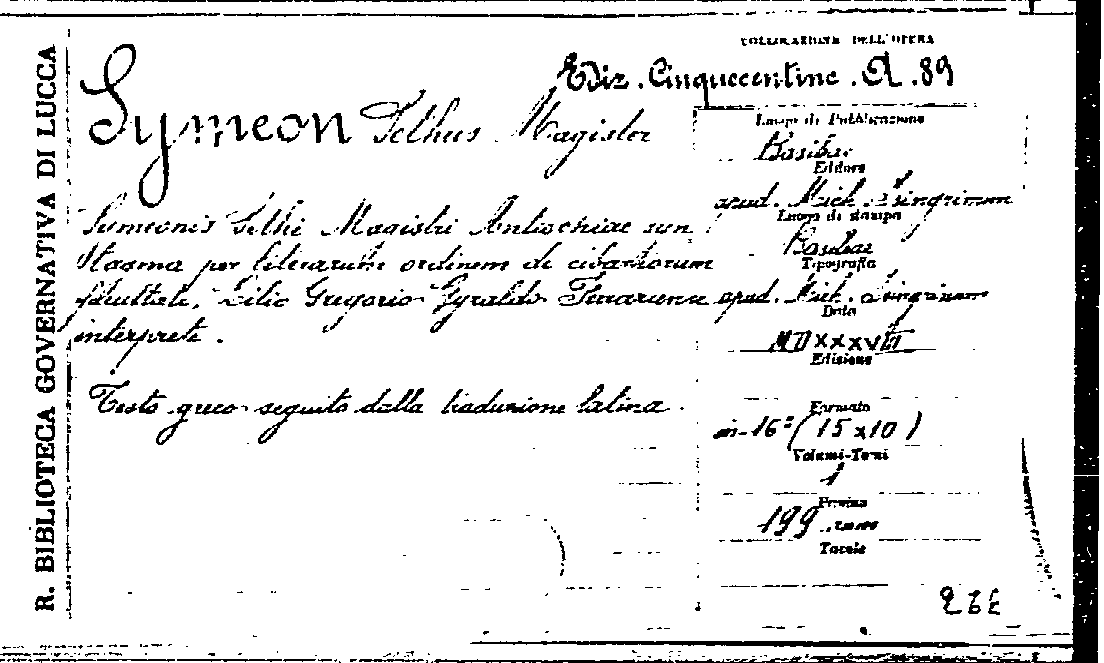 R. BIBLIOTECA GOVERNATIVA DI LUCCA
COLLOCAZIONE DELL'OPERA
Ediz. Cinquecentine. A. 89
Symeon Sethus Magister
Symeonis Sethi Magistri Antiochiae syn
tagma per literarum ordinem de cibariorum
facultate, Lilio Gregorio Gyraldo Ferrariensi
interprete.
Testo greco seguito dalla traduzione latina.
Luogo di Pubblicazione
Basileae
Editore
apud. Mich. Isingrinum
Luogo di stampa
Basileae
Tipografia
apud. Mich. Isingrinum
Data
MDXXXVIII
Edizione
Formato
in-16º (15x10)
Volumi-Tomi
1
Pagine
199
Tavole